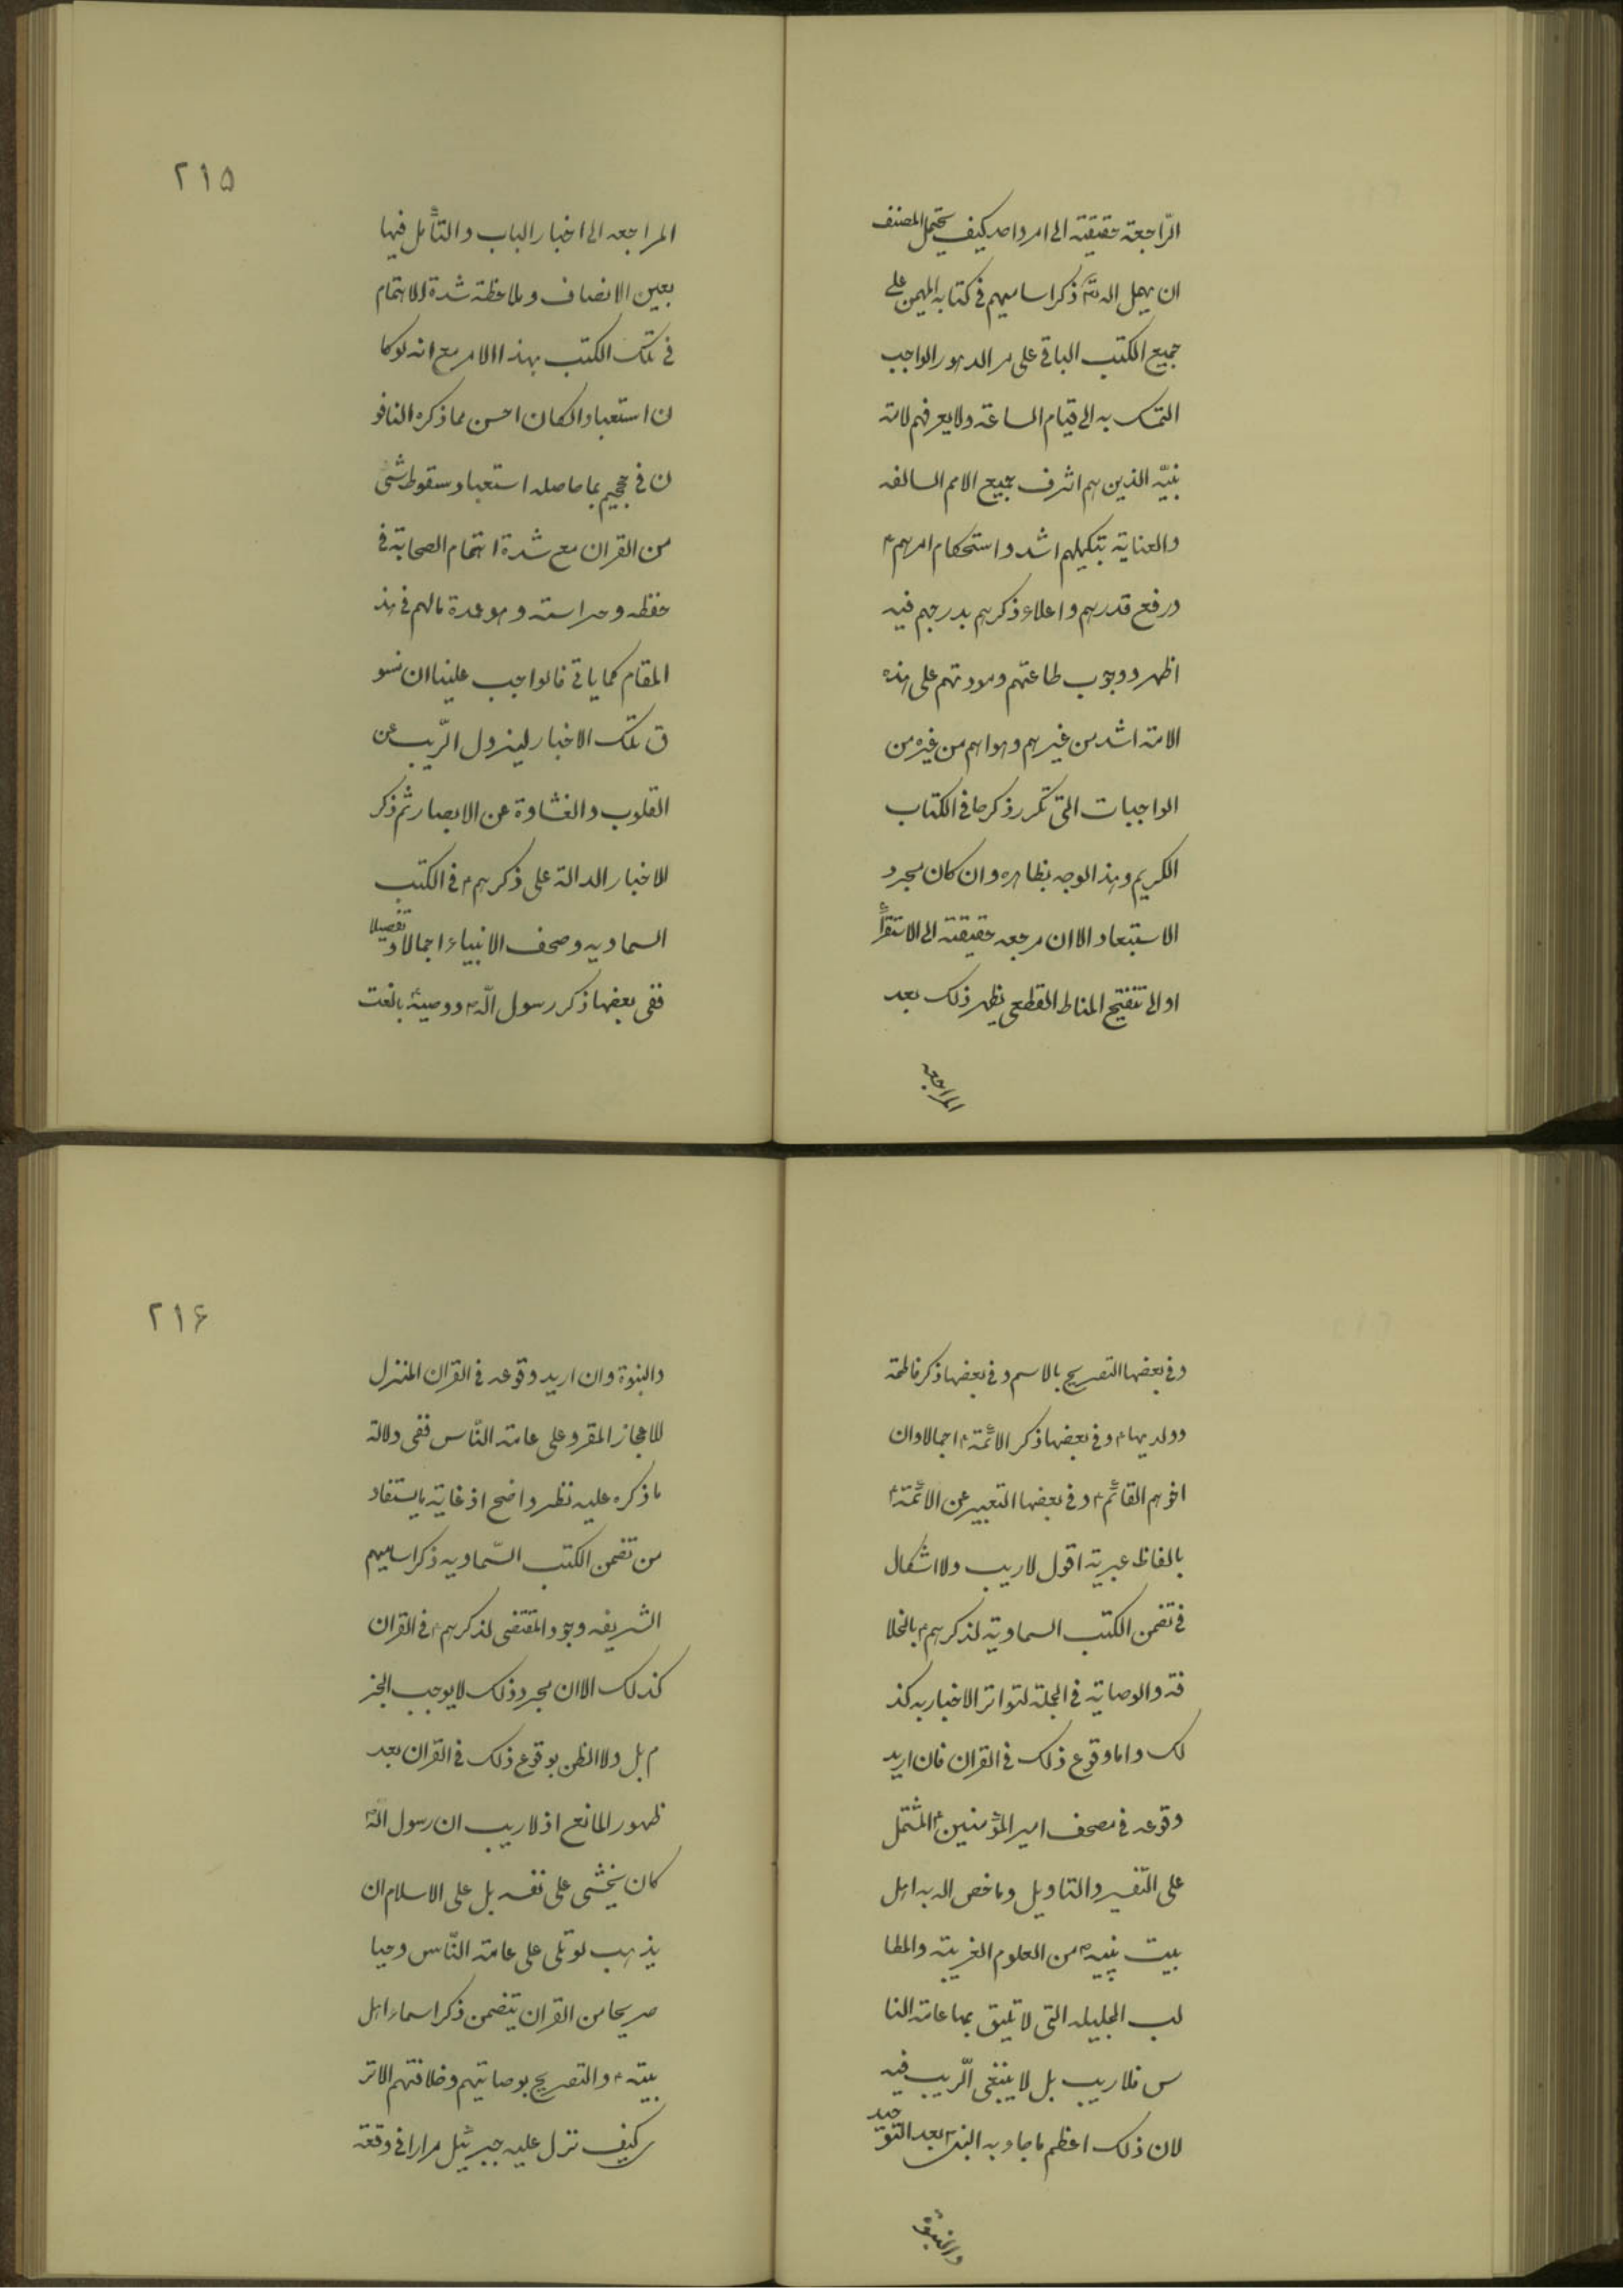 الرّاجعة حقيقته الى امر واحد كيف يحتمل المصنف
ان يهمل الله تع ذكر اساميهم فى كتابه المهيمن على
جميع الكتب الباقى على مر الدهور الواجب
التمسك به الى قيام الساعة ولا يعرفهم لامة
نبيّه الذين هم اشرف جميع الامم السالفه
والعناية بتكميلهم اشد و استحكام امرهم ع
ورفع قدرهم و اعلاء ذكرهم بدرجهم فيه
اظهر و وجوب طاعتهم ومودتهم على هذه
الامة اشد من غيرهم وهو اهم من غيره من
الواجبات التى تكرر ذكرها فى الكتاب
الكريم وهذا الوجه بظاهره و ان كان مجرد
الاستبعاد الا ان مرجعه حقيقته الى الاستقرأ
او الى تنقيح المناط القطعى يظهر ذلك بعد
المراجعه
٢١۵
المراجعه الى اخبار الباب و التأمل فيها
بعين الانصاف و ملاحظة شدة الاهتمام
فى تلك الكتب بهذا الامر مع انه لو كا
ن استعبادا لكان احسن مما ذكره النافو
ن فى حججهم بما حاصله استعباد سقوط شئ
من القران مع شدة اهتمام الصحابة فى
حفظه و حراسته و هو عمدة مالهم فى هذ
المقام كما ياتى فالواجب علينا ان نسو
ق تلك الاخبار ليزول الرّيب عن
القلوب و الغشاوة عن الابصار ثم ذكر
الاخبار الدالة على ذكرهم ع فى الكتب
السماويه و صحف الانبياء اجمالا و تفصيلا
ففى بعضها ذكر رسول الله ص و وصيه بالنعت
وفى بعضها التصريح بالاسم و فى بعضها ذكر فاطمة
و ولديها ع و فى بعضها ذكر الائمة ع اجمالا و ان
اخرهم القائم ع و فى بعضها التعبير عن الائمة ع
بالفاظ عبرية اقول لا ريب و لا اشكال
فى تضمن الكتب السماوية لذكرهم ع بالخلا
فة و الوصاية فى الجملة لتواتر الاخبار به كذ
لك و اما وقوع ذلك فى القران فان اريد
وقوعه فى مصحف امير المؤمنين ع المشتمل
على التفسير و التاويل و ما خص الله به اهل
بيت نبيه ص من العلوم الغريبة و المطا
لب الجليله التى لا تليق بها عامة النا
س فلا ريب بل لا ينبغى الرّيب فيه
لان ذلك اعظم ما جاء به النبى ص بعد التوحيد
والنبوة
٢١۶
والنبوة و ان اريد وقوعه فى القران المنزل
للاعجاز المقرو على عامة النّاس ففى دلالة
ما ذكره عليه نظر واضح اذ غاية ما يستفاد
من تضمن الكتب السّماويه ذكر اساميهم
الشريفه وجود المقتضى لذكرهم ع فى القران
كذلك الا ان مجرد ذلك لا يوجب الجز
م بل و لا الظن بوقوع ذلك فى القران بعد
ظهور المانع اذ لا ريب ان رسول الله ص
كان يخشى على نفسه بل على الاسلام ان
يذهب لو تلى على عامة النّاس وحيا
صريحا من القران يتضمن ذكر اسماء اهل
بيته ع و التصريح بوصايتهم و خلافتهم الا تر
ى كيف نزل عليه جبرئيل مرارا فى وقعة